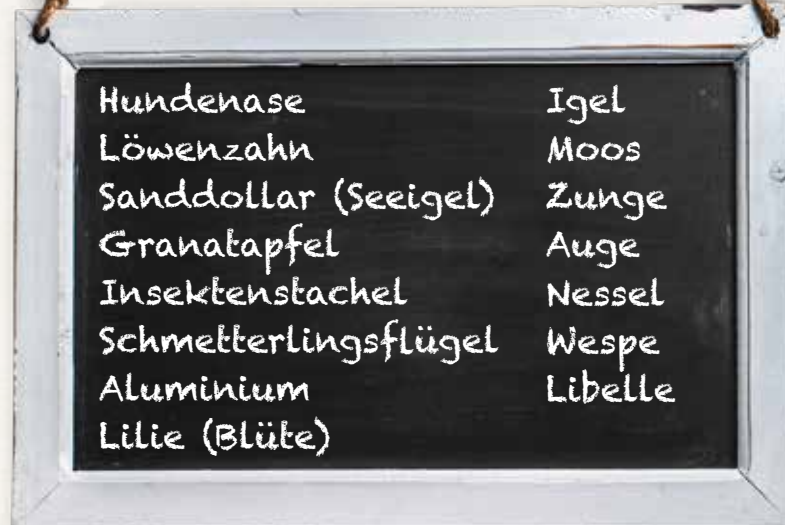 Hundenase
Löwenzahn
Sanddollar (Seeigel)
Granatapfel
Insektenstachel
Schmetterlingsflügel
Aluminium
Lilie (Blüte)
Igel
Moos
Zunge
Auge
Nessel
Wespe
Libelle